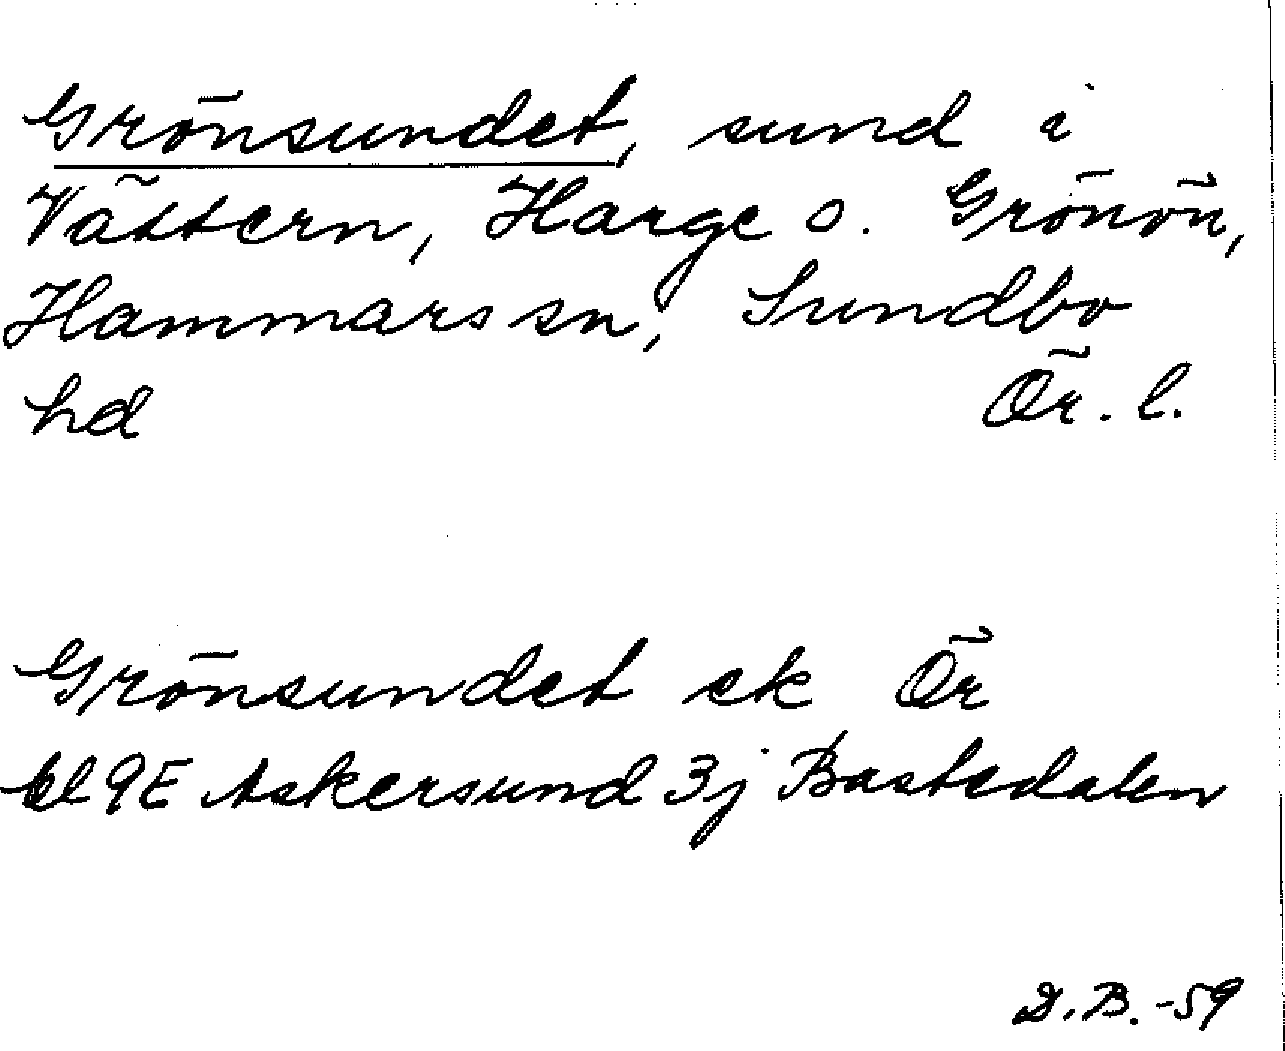 Grönsundet, sund i
Vättern, Harge o. Grönön,
Hammars sn, Sundbo
hd Ör. l.
Grönsundet ek Ör
bl 9E Askersund 3j Bastedalen
D.B. -59